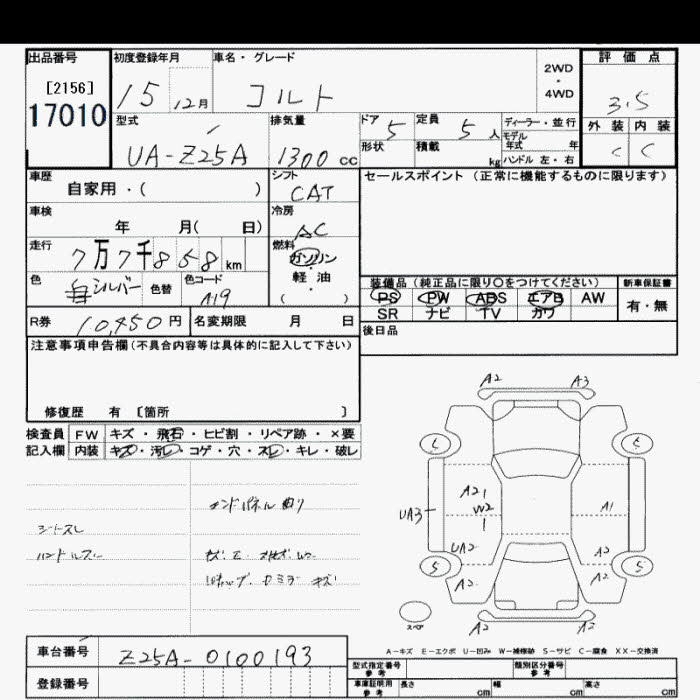 出品番号 初度登録年月 車名・グレード 評価点
[2156] 15 12月 コルト 2WD・4WD 3.5
17010
型式 排気量 ドア 5 定員 5人 ディーラー・並行 外装 内装
UA-Z25A 1300cc 形状 積載 kg モデル年式 年 C C
ハンドル 左・右
車歴 シフト セールスポイント (正常に機能するものに限ります)
自家用・( ) CAT
車検 冷房
年 月( 日) AC
走行 燃料
7万7千858km ガソリン・軽油
色 シルバー 色替 色コード A19 ( )
装備品 (純正品に限り○をつけてください) 新車保証書
PS PW ABS エアB AW 有・無
SR ナビ TV カワ
R券 10,450円 名変期限 月 日 後日品
注意事項申告欄(不具合内容等は具体的に記入して下さい)
修復歴 有 [箇所 ]
検査員 FW キズ・飛石・ヒビ割・リペア跡・×要
記入欄 内装 キズ・汚レ・コゲ・穴・スレ・キレ・破レ
シートスレ
ハンドルスレ
A2 A3
A21
W2 A1
UA3
UA2 A2
A2 A2
スペア A2 A2
A-キズ E-エクボ U-凹み W-補修跡 S-サビ C-腐食 XX-交換済
車台番号 Z25A-0100193
登録番号
型式指定番号 参考 類別区分番号 参考
車庫証明用 参考 長さ cm 幅 cm 高さ cm